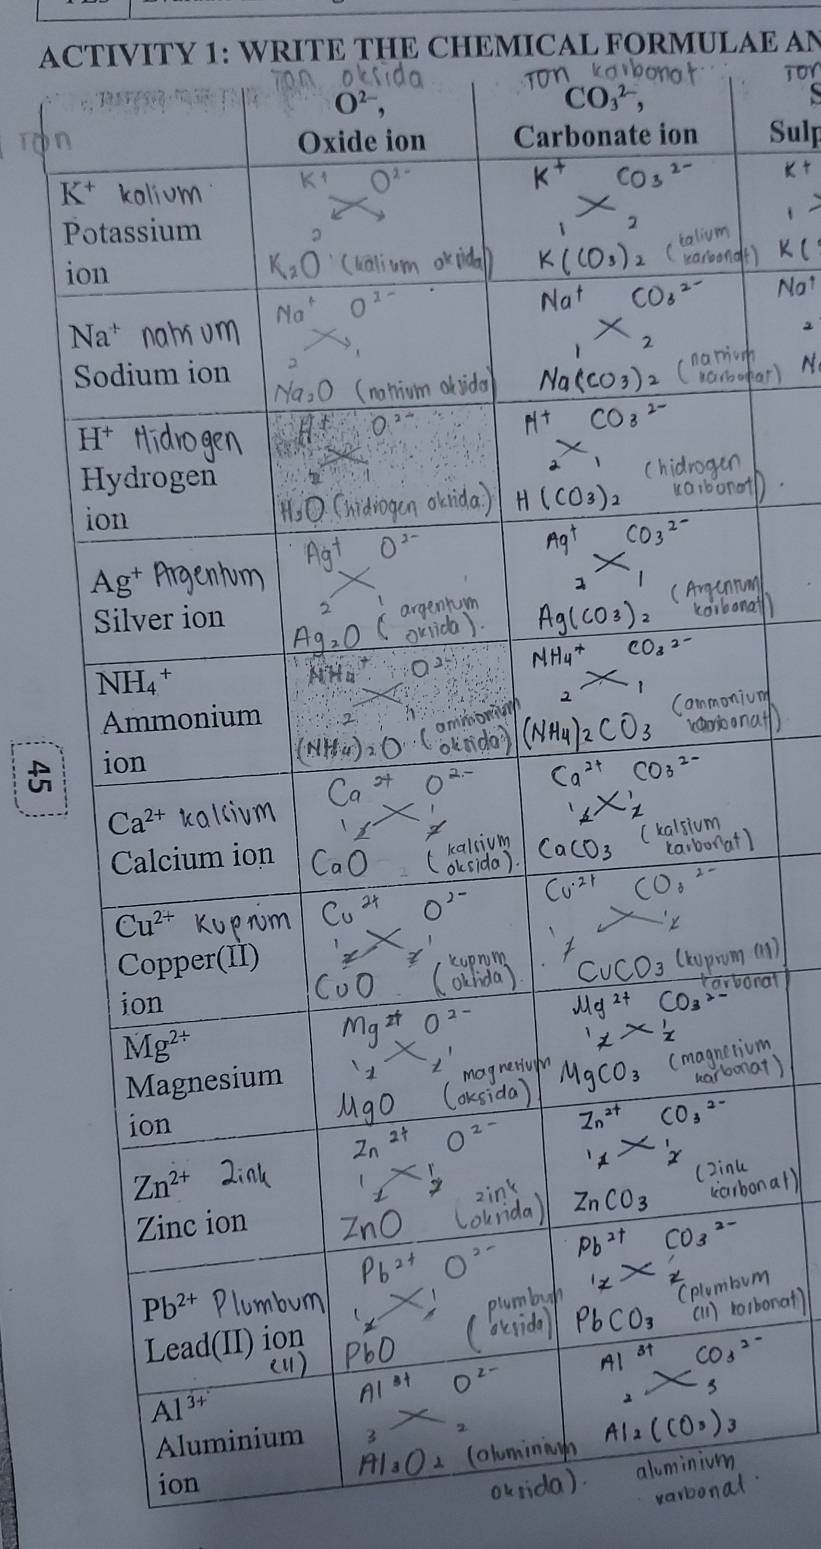 ACTIVITY 1: WRITE THE CHEMICAL FORMULAE AN
Ion
Ion oksida
O²⁻,
Oxide ion
Ion karbonat
CO₃²⁻,
Carbonate ion
Ion
S
Sulp
K⁺ kalium
Potassium
ion
K⁺ O²⁻
2
K₂O (kalium oksida)
K⁺ CO₃²⁻
1 2
K(CO₃)₂ (kalium
karbonat)
K⁺
1
K(
Na⁺ natrium
Sodium ion
Na⁺ O²⁻
2 1
Na₂O (natrium oksida)
Na⁺ CO₃²⁻
1 2
Na(CO₃)₂ (natrium
karbonat)
Na⁺
2
N
H⁺ Hidrogen
Hydrogen
ion
H⁺ O²⁻
2 1
H₂O (hidrogen oksida)
H⁺ CO₃²⁻
2 1
(hidrogen
H(CO₃)₂ karbonat)
Ag⁺ Argentum
Silver ion
Ag⁺ O²⁻
2 1
Ag₂O (argentum
oksida).
Ag⁺ CO₃²⁻
2 1
Ag(CO₃)₂ (Argentum
karbonat)
NH₄⁺
Ammonium
ion
NH₄⁺ O²⁻
2 1
(NH₄)₂O (ammonium
oksida)
NH₄⁺ CO₃²⁻
2 1
(NH₄)₂CO₃ (ammonium
karbonat)
45
Ca²⁺ kalsium
Calcium ion
Ca²⁺ O²⁻
1 2 1 2
CaO (kalsium
oksida).
Ca²⁺ CO₃²⁻
1 2 1 2
CaCO₃ (kalsium
karbonat)
Cu²⁺ Kuprum
Copper(II)
ion
Cu²⁺ O²⁻
1 2 1 2
CuO (kuprum
oksida)
Cu²⁺ CO₃²⁻
1 2 1 2
CuCO₃ (kuprum (II)
karbonat
Mg²⁺
Magnesium
ion
Mg²⁺ O²⁻
1 2 1 2
MgO (magnesium
oksida)
Mg²⁺ CO₃²⁻
1 2 1 2
MgCO₃ (magnesium
karbonat)
Zn²⁺ Zink
Zinc ion
Zn²⁺ O²⁻
1 2 1 2
ZnO (zink
oksida)
Zn²⁺ CO₃²⁻
1 2 1 2
ZnCO₃ (zink
karbonat)
Pb²⁺ Plumbum
Lead(II) ion
(II)
Pb²⁺ O²⁻
1 2 1
PbO (plumbum
oksida)
Pb²⁺ CO₃²⁻
1 2 1 2
PbCO₃ (plumbum
(II) karbonat)
Al³⁺
Aluminium
ion
Al³⁺ O²⁻
3 2
Al₃O₂ (aluminium
oksida).
Al³⁺ CO₃²⁻
2 3
Al₂(CO₃)₃
aluminium
karbonat.